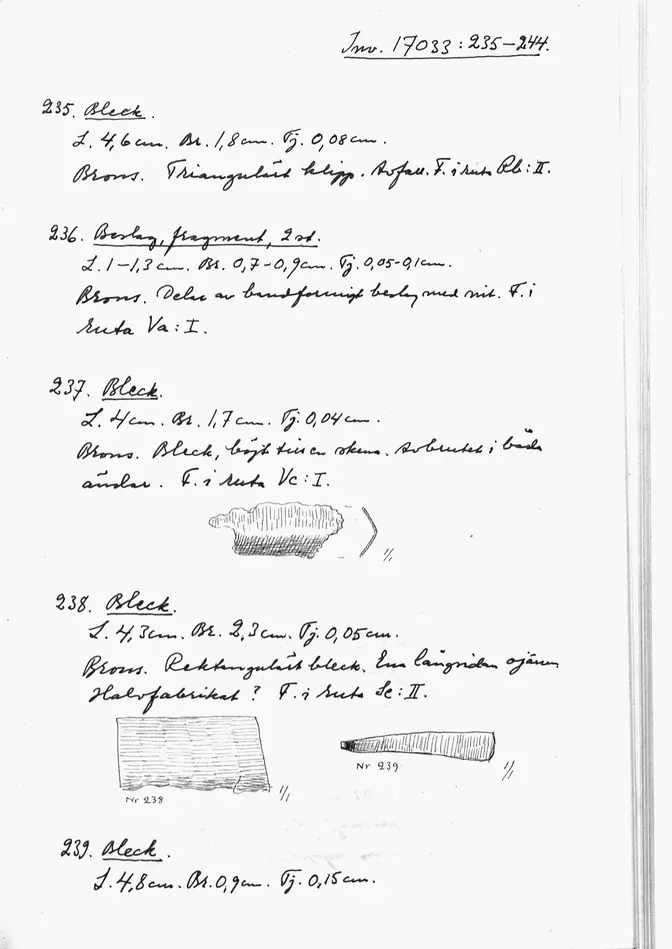 Inv. 17033:235-244.
235. Bleck.
L. 4,6cm. Br. 1,8cm. Tj. 0,08cm.
Brons. Triangulärt klipp. Avfall. F. i ruta Rb:II.
236. Beslag, fragment, 2 st.
L. 1-1,3cm. Br. 0,7-0,9cm. Tj. 0,05-0,1cm.
Brons. Delar av bandformigt beslag med nit. F. i
ruta Va:I.
237. Bleck.
L. 4cm. Br. 1,7cm. Tj. 0,04cm.
Brons. Bleck, böjt till en skena. Avbrutet i båda
ändar. F. i ruta Vc:I.
1/1
238. Bleck.
L. 4,3cm. Br. 2,3cm. Tj. 0,05cm.
Brons. Rektangulärt bleck. Ena långsidan ojämn
Halvfabrikat? F. i ruta Sc:II.
Nr 238 1/1
Nr 239 1/1
239. Bleck.
L. 4,8cm. Br. 0,9cm. Tj. 0,15cm.